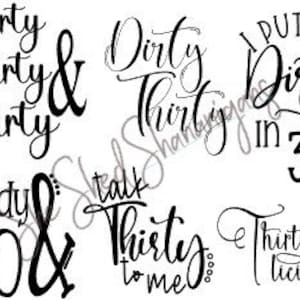 irty
irty
&
irty
Dirty
Thirty
I PUT
Dir
IN 3
dy
&
talk
Thirty
to me
Thirty
lici
She Shed Shenanigans